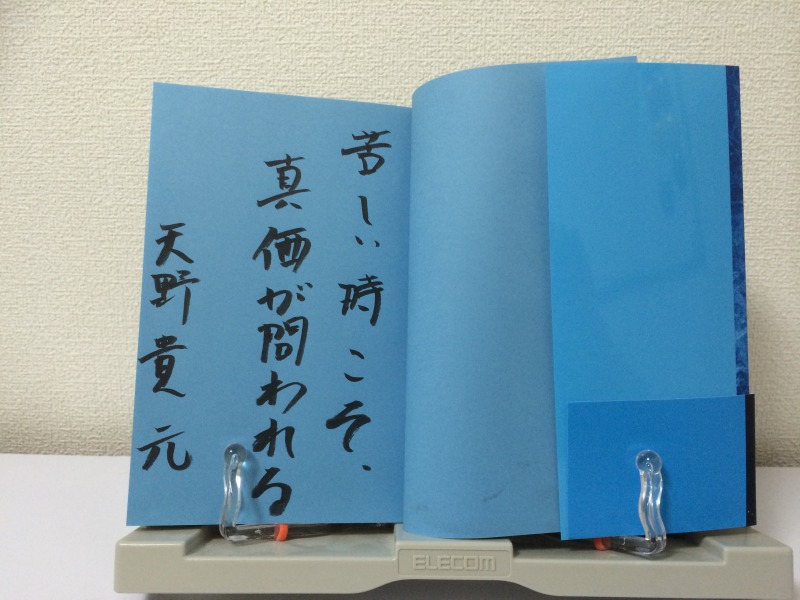 苦しい時こそ、
真価が問われる
天野貴元
ELECOM